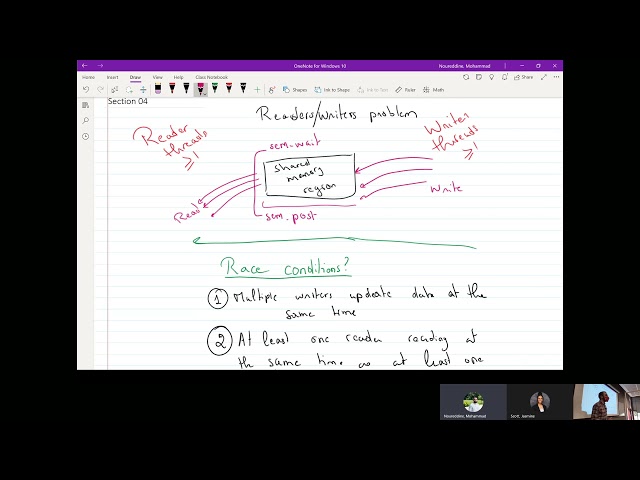 OneNote for Windows 10
Noureddine, Mohammad
File Home Insert Draw View Help Class Notebook
Share
Shapes Ink to Shape Ink to Text Ink to Math
Section 04
Readers/Writers problem
Reader threads ≥1
Writer threads ≥1
sem_wait
shared
memory
region
Read
Write
sem_post
Race conditions?
① Multiple writers update data at the
same time
② At least one reader reading at
the same time as at least one
Noureddine, Mohammad
Scott, Jasmine